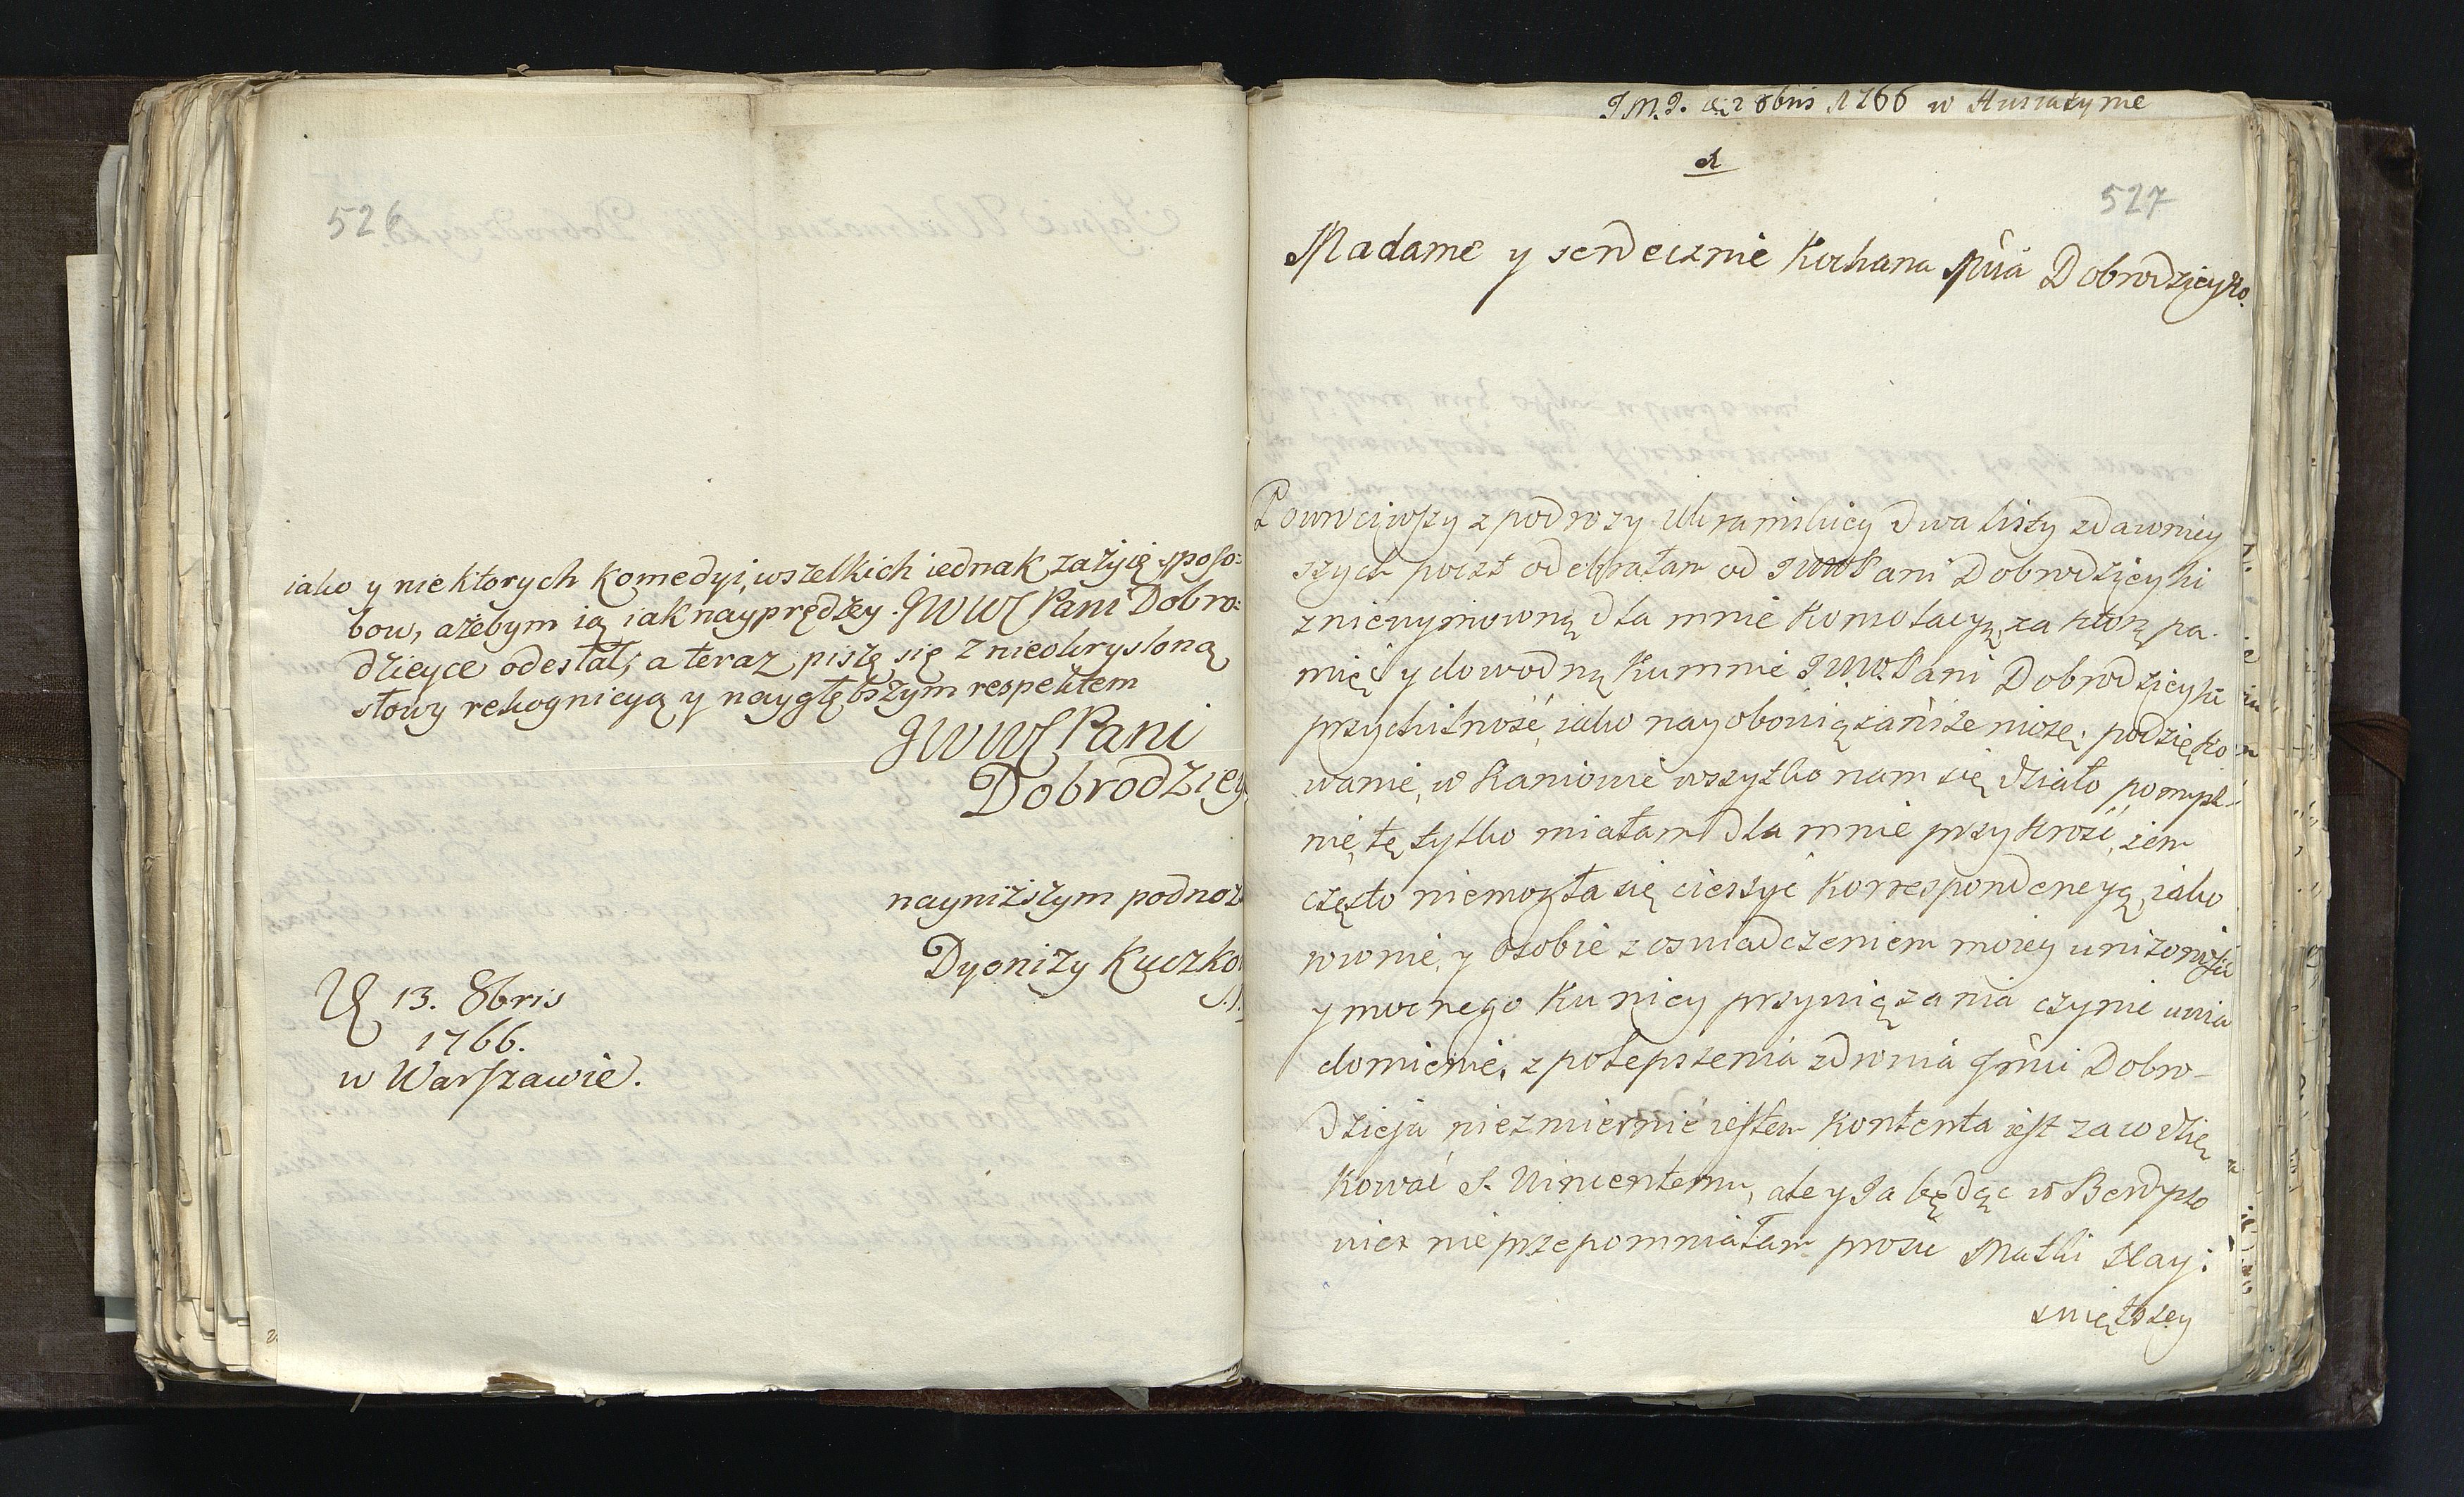 526
iako y niektorych Komedyi, wszelkich iednak zażyię sposo=
bow, ażebym ią iak nayprędzey. JWW Pani Dobro=
dzieyce odesłał; a teraz piszę się z nieokrysloną
słowy rekognicyą y naygłębszym respektem
JWW Pani
Dobrodziey
nayniższym podnoż
Dyonizy Kuczko
13. 8bris
1766.
w Warszawie.
8bris 1766 w Husiatynie
527
Madame y serdecznie Kochana Mia Dobrodzieyko.
Powrociwszy z podrozy Ukrainskiey dwa listy zdawniey
szych poczt odebrałam od JWWPani Dobrodzieyki
z niewymowną dla mnie Konsolacyą, za ktorą pa.
mięć y dowodną Kumnie JWW.Pani Dobrodzieyki
przychilność, iako nayobowiązańsze niosę podzięko
wanie, w Kaniowie wszytko nam się działo pomysl-
nie, tę tylko miałam dla mnie przykrość, żem
często niemogła się cieszyć Korrespondencyą, iako
rownie, y osobie z oswiadczeniem moiey unizonosci
y mocnego Ku niey przywiązania czynie uwia
domienie, z polepszenia zdrowia Jmci Dobro-
dzieja niezmiernie iestem kontenta iest za co dzię
kować S. Wincentemu, ale y Ja będąc w Berdyczo
wiex nieprzepomniałam prosic Matki Nay:
swiętszey